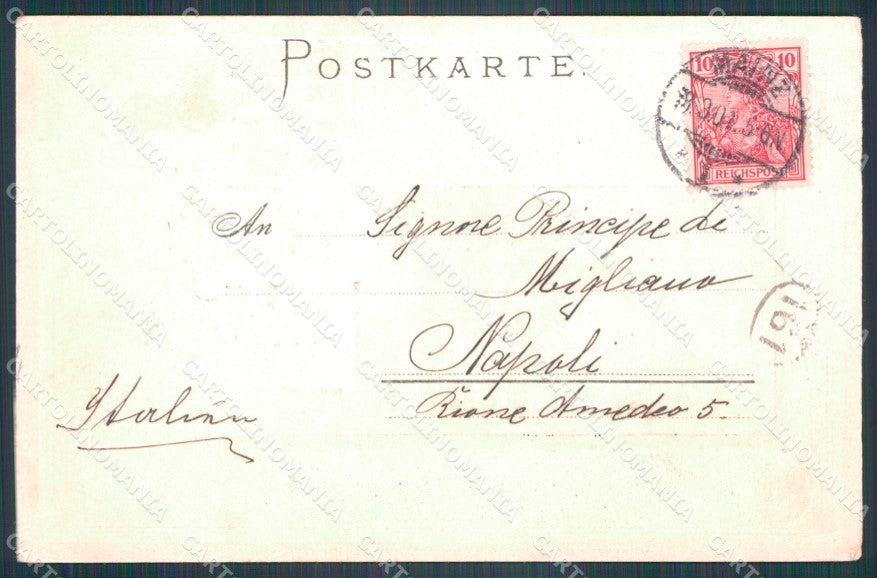 POSTKARTE.
10 10
REICHSPOST
MAINZ
5-6N
An Signore Principe di
Migliano
Napoli
Rione Amedeo 5.
Italien
191
CARTOLINOMANIA